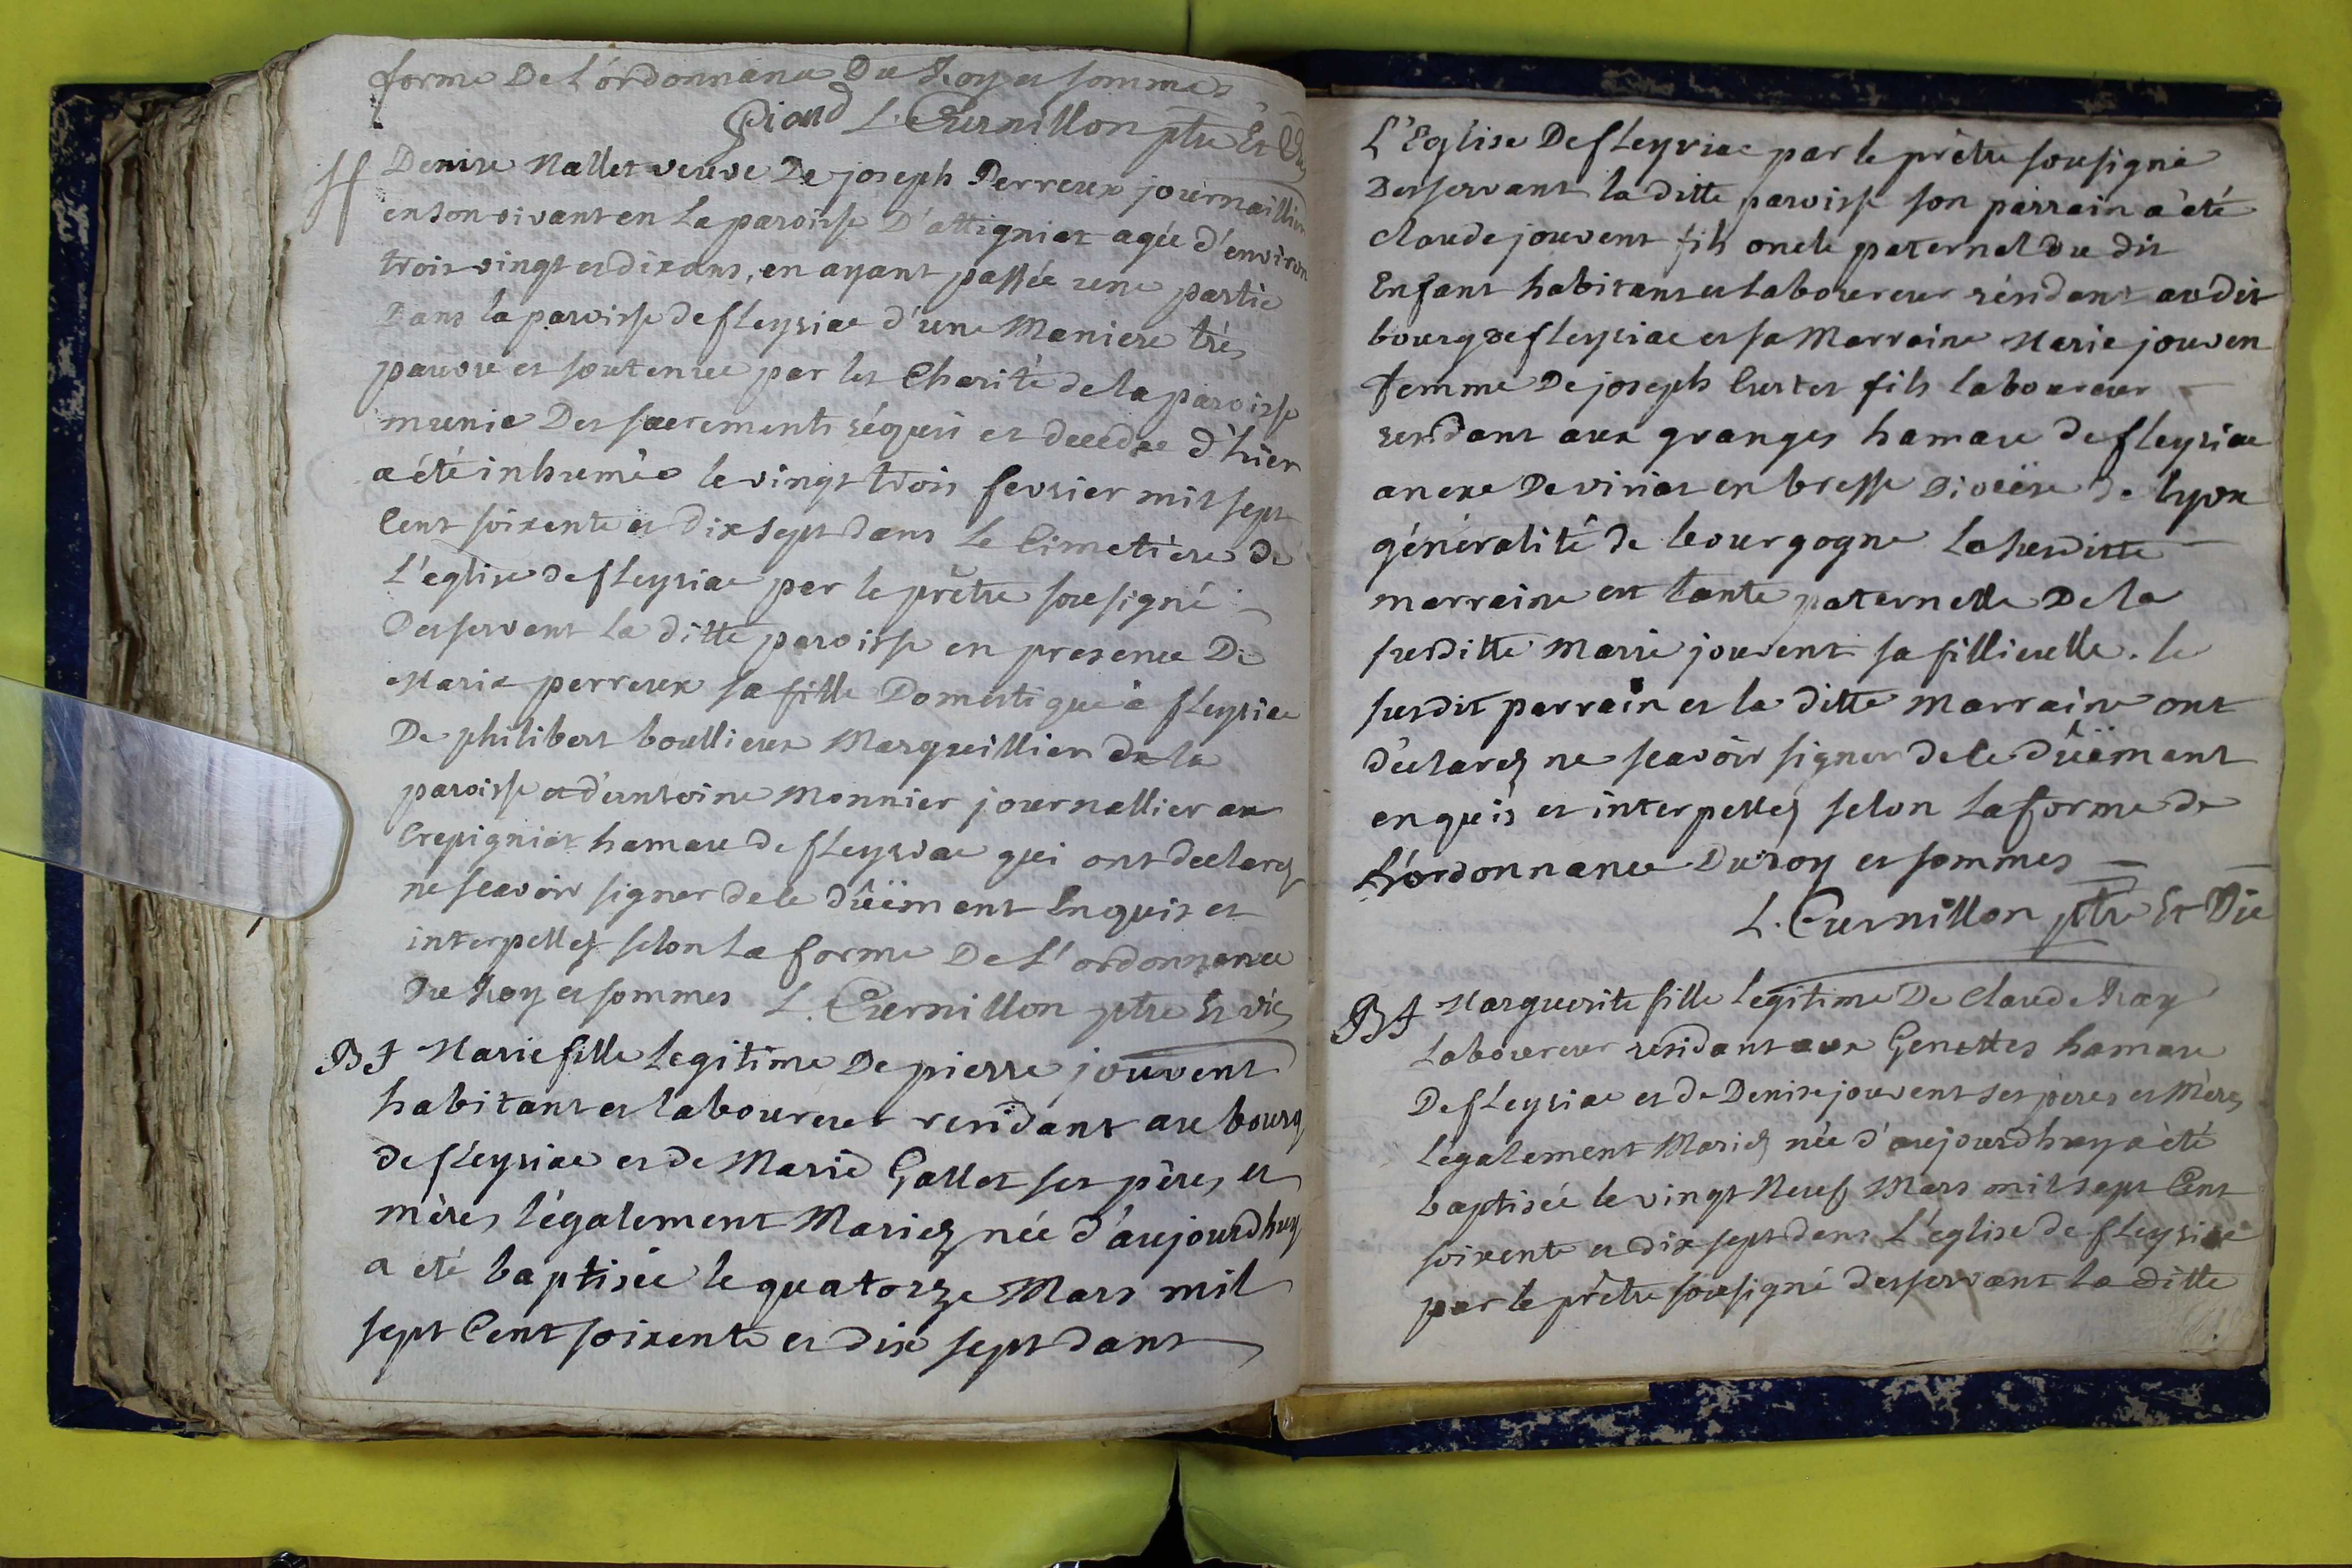 forme De L'ordonnance Du Roy et sommes
Gioud L. Curnillon ptre Et Vic
Denise Mallet veuve De joseph Perreux journaillier
en son vivant en La paroisse D'attigniat agée d'environ
trois vingt et dix ans, en ayant passée une partie
Dans la paroisse de fleyriac d'une Maniere très
pauvre et soutenue par les Charité de la paroisse
munie Des sacrements réquri et decedée d'hier
a été inhumée le vingt trois fevrier mil sept
Cent soixente et dix sept dans Le Cimetière de
L'eglise de fleyriac par le prêtre sousigné
Desservant La ditte paroisse en presence De
Marie perreux sa fille Domestique à fleyriac
De philibert boullieux Marguillier de la
paroisse et d'antoine Monnier journallier au
Crepigniat hamau de fleyriac qui ont declarez
ne scavoir signer de ce dûëment Enquis et
interpellez selon La forme De L'ordonnance
Du Roy et sommes L. Curnillon ptre Et vic
Bt Marie fille Legitime De pierre jouvent
habitant et laboureur residant au bourg
de fleyriac et de Marie Gallet ses pères et
mères légalement Mariez née d'aujourdhuy
a été baptisée le quatorze Mars mil
sept Cent soixente et dix sept dans
L'Eglise De fleyriac par le prêtre sousigné
Desservant la ditte paroisse son parrain a été
Claude jouvent fils oncle paternel du dit
Enfant habitant et laboureur résidant au dit
bourg de fleyriac et sa Marraine Marie jouven
femme De joseph Curtet fils laboureur
residant aux granges hamau de fleyriac
anexe De viriat en bresse Diocèse de Lyon
généralité de bourgogne La susditte
marraine est tante paternelle De la
susditte Marie jouvent sa fillieulle. le
susdit parrain et la ditte marraine ont
déclarez ne scavoir signer de ce dûëment
enquis et interpellez selon La forme de
L'ordonnance Du roy et sommes
L. Curnillon ptre Et Vic
Bt Marguerite fille Legitime De Claude Ray
Laboureur residant aux Genettes hamau
De fleyriac et de Denise jouvent ses pères et Mères
Légalement Mariez née d'aujourdhuy a été
baptisée le vingt Neuf Mars mil sept Cent
soixente et dix sept dans L'eglise de fleyriac
par le prêtre sousigné desservant La ditte